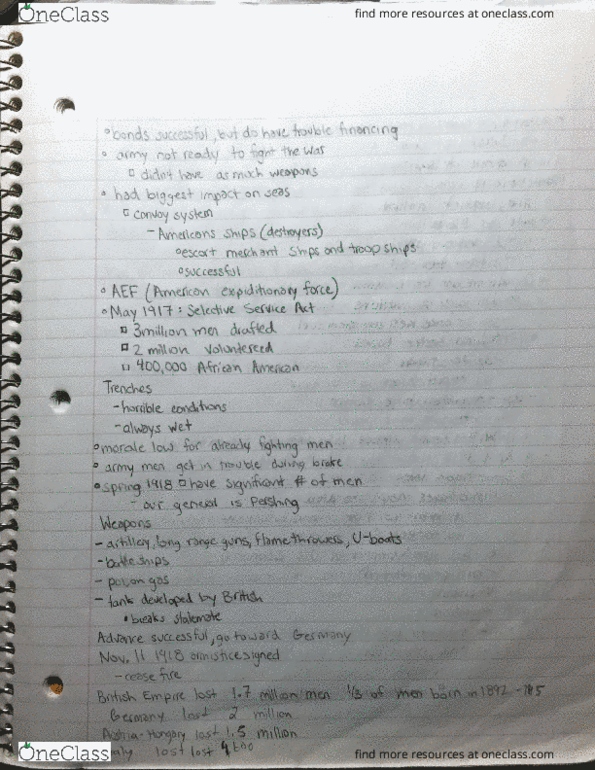 OneClass
find more resources at oneclass.com
bonds successful, but do have trouble financing
army not ready to fight the war
didn't have as much weapons
had biggest impact on seas
convoy system
- Americans ships (destroyers)
escort merchant ships and troop ships
successful
AEF (American expiditionary force)
May 1917: Selective Service Act
3 million men drafted
2 million volunteered
400,000 African American
Trenches
- horrible conditions
- always wet
morale low for already fighting men
army men get in trouble during broke
spring 1918 have significant # of men
- our general is Pershing
Weapons
- artillery, long range guns, flamethrowers, U-boats
- battleships
- poison gas
- tank developed by British
breaks stalemate
Advance successful, go toward Germany
Nov. 11 1918 armistice signed
- cease fire
British Empire lost 1.7 million men 1/3 of men born in 1892 -
Germany lost 2 million
Austria-Hungary lost 1.5 million
Italy lost lost
OneClass
find more resources at oneclass.com